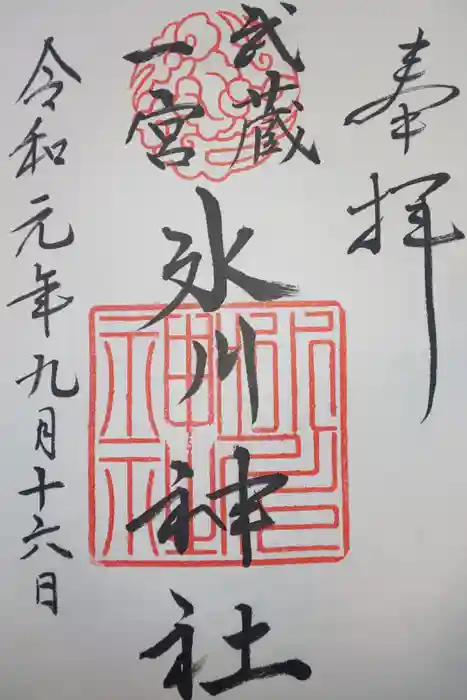 奉拝
武蔵
一宮
氷川神社
令和元年九月十六日
氷川神社